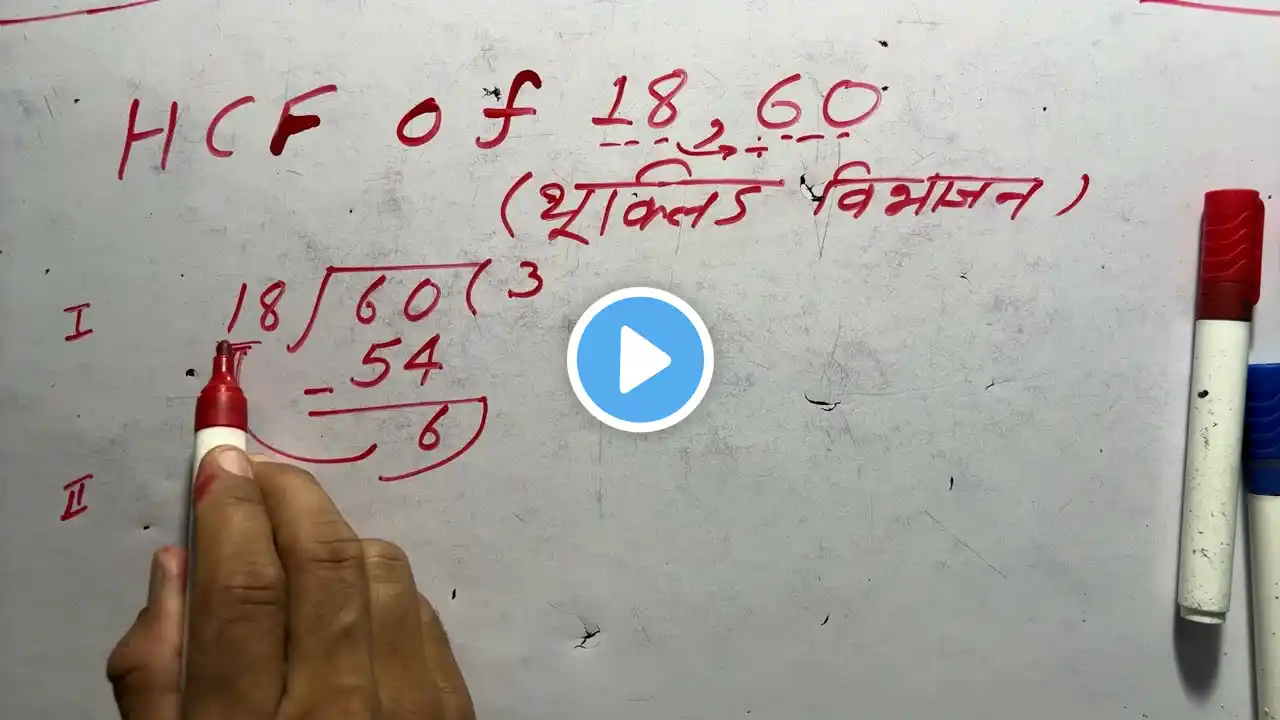 HCF of 18, 60
÷
(यूक्लिड विभाजन)
I 18 60 ( 3
- 54
6
II